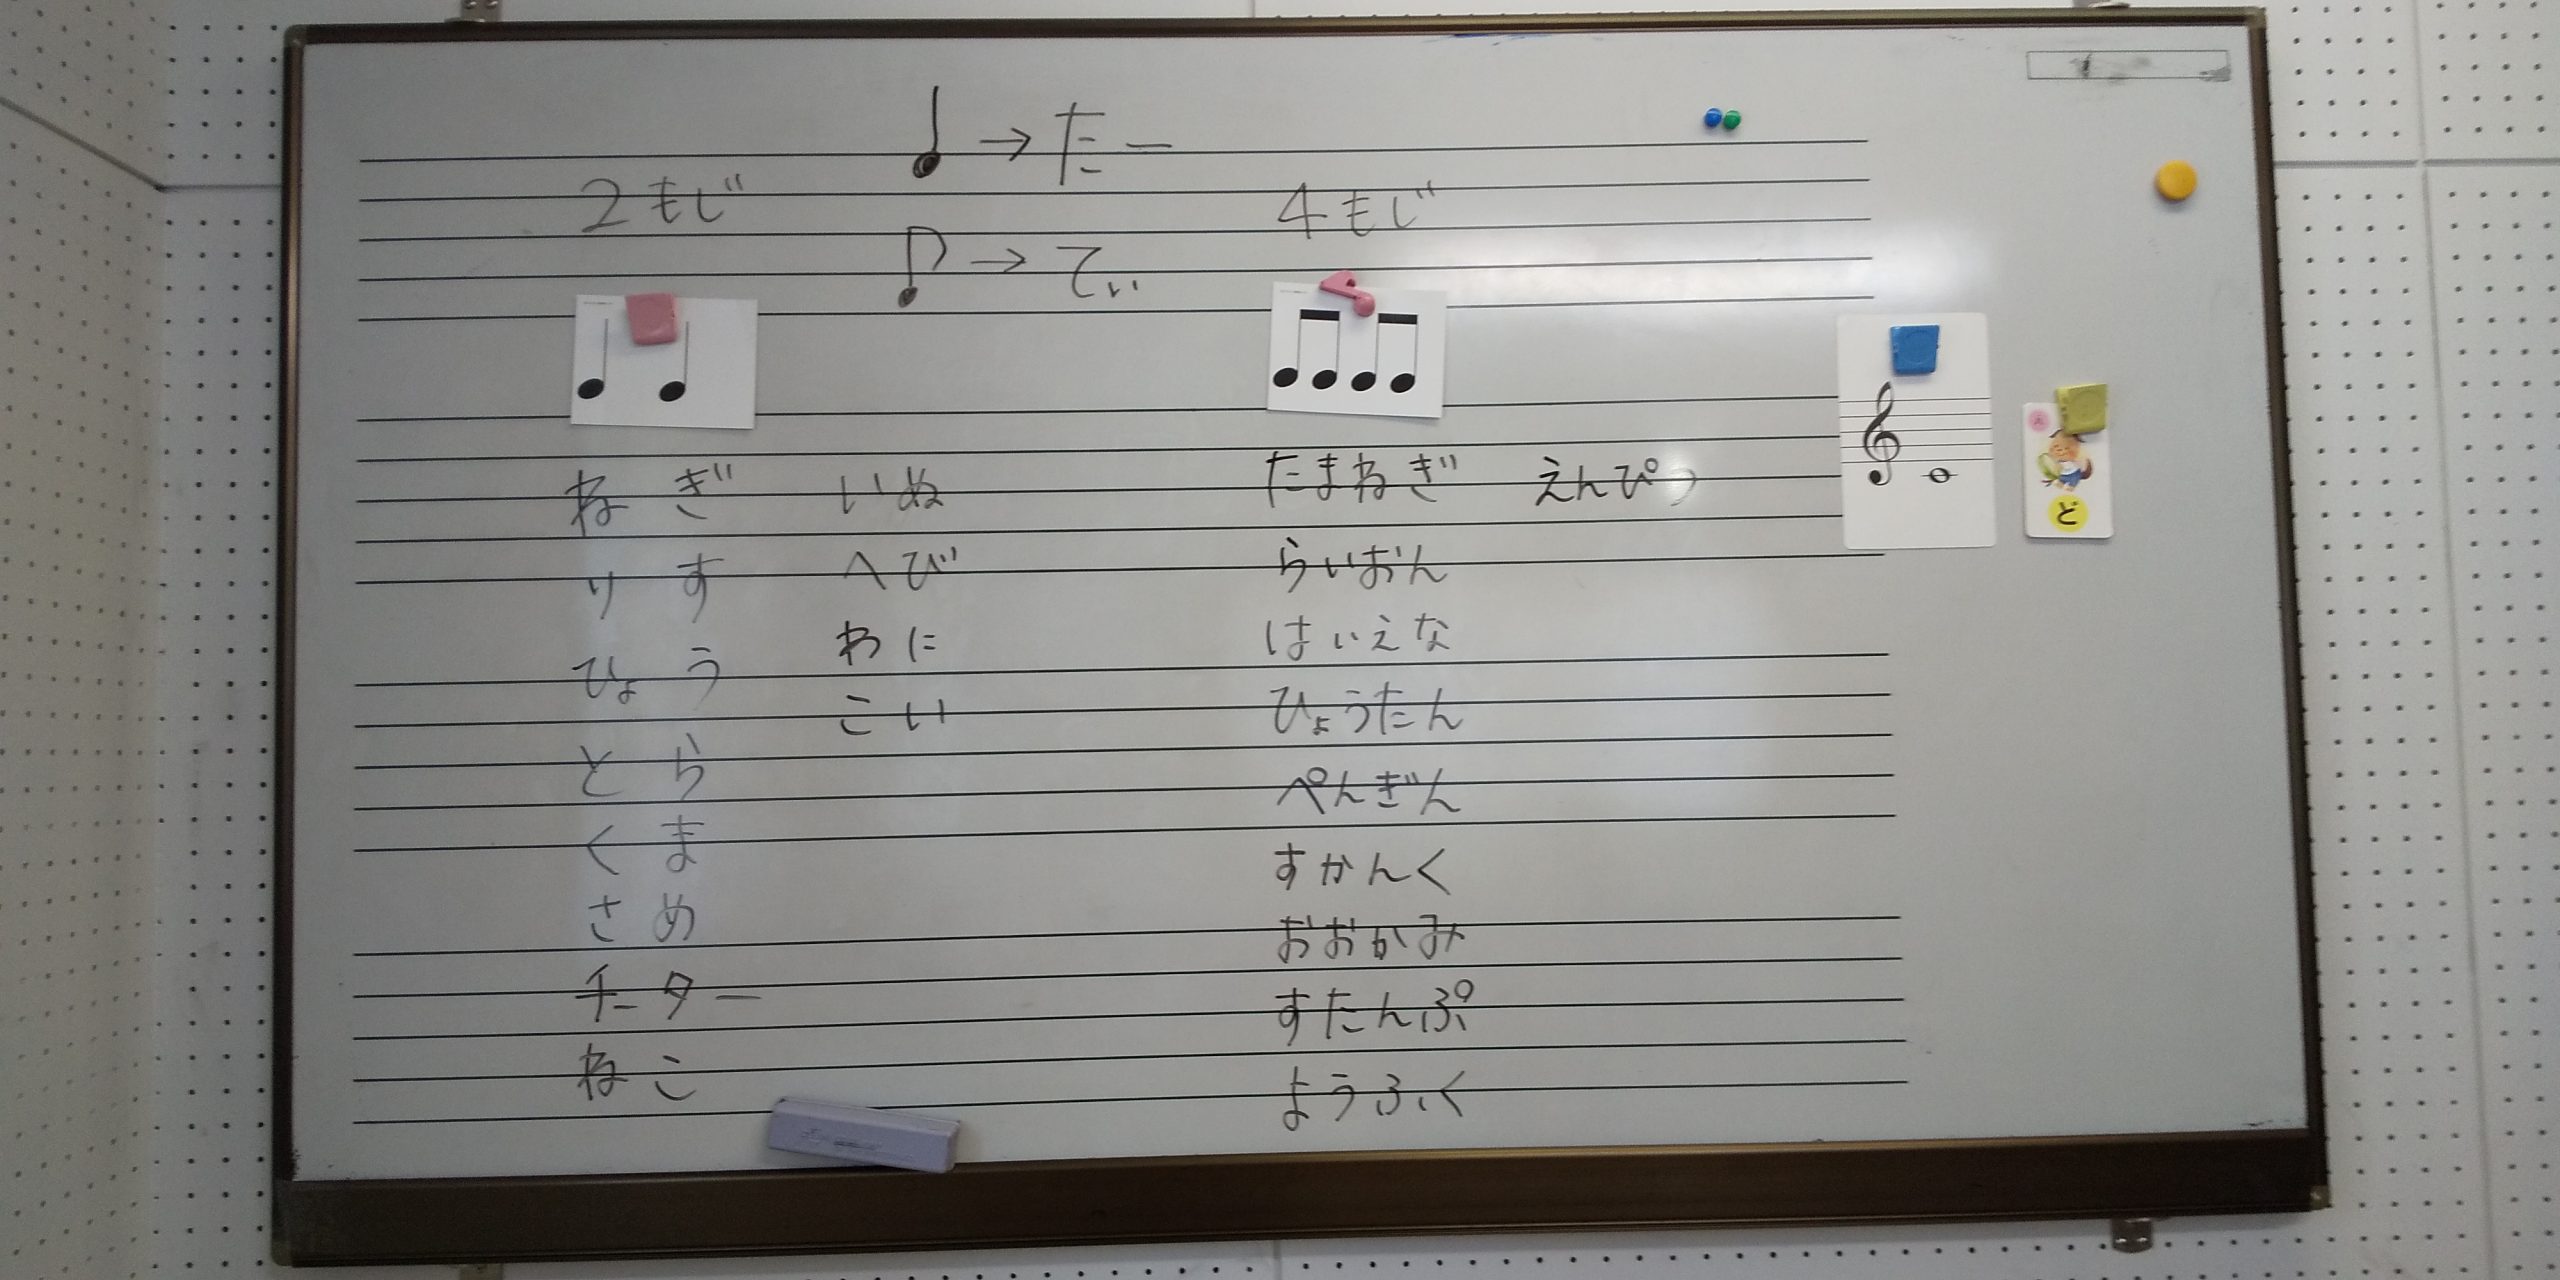 ♩→たー
2もじ
4もじ
♪→てぃ
ねぎ いぬ
りす へび
ひょう わに
とら こい
くま
さめ
チーター
ねこ
たまねぎ えんぴつ
らいおん
はいえな
ひょうたん
ぺんぎん
すかんく
おおかみ
すたんぷ
ようふく
ど